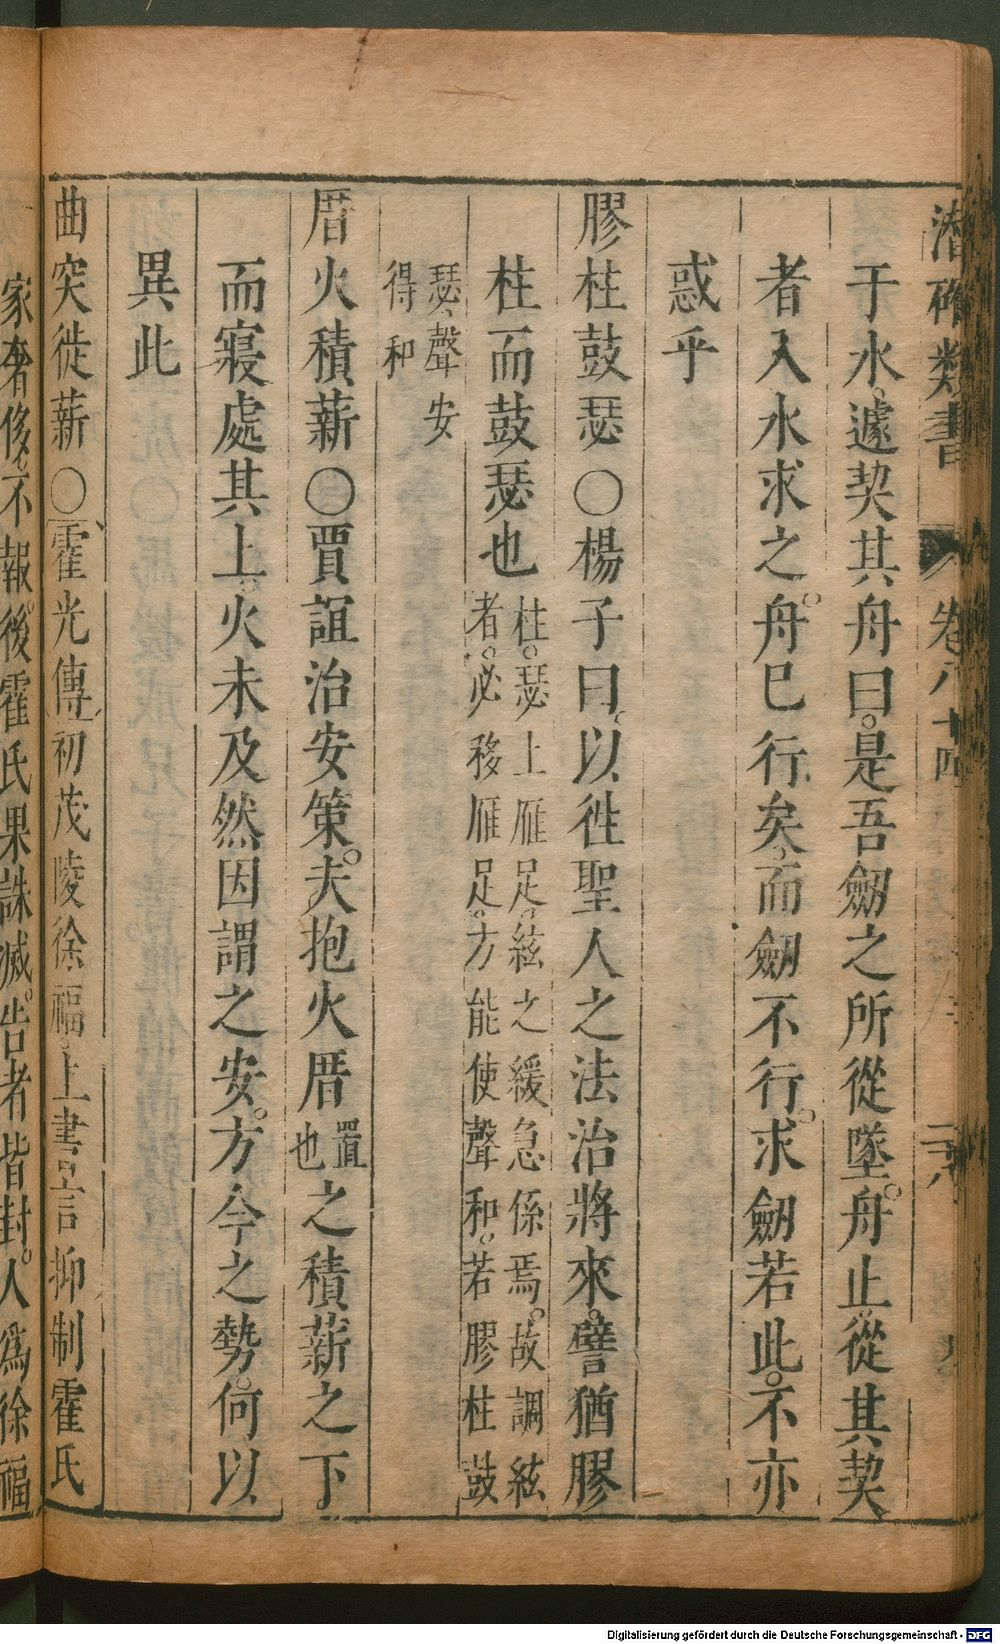 潛確類書 卷八十四 二六
于水遽契其舟曰。是吾劒之所從墜。舟止從其契
者入水求之。舟巳行矣而劒不行。求劒若此。不亦
惑乎
膠柱鼓瑟○楊子曰。以徃聖人之法治將來。譬猶膠
柱而鼓瑟也
柱。瑟上雁足。絃之緩急係焉。故調絃
者。必移雁足。方能使聲和。若膠柱鼓
瑟、聲安
得和
厝火積薪○賈誼治安策。夫抱火厝
置
也
之積薪之下
而寢處其上。火未及然因謂之安。方今之勢。何以
異此
曲突徙薪○霍光傳初茂陵徐福上書言抑制霍氏
家奢侈不報。後霍氏果誅滅。告者皆封。人爲徐福
Digitalisierung gefördert durch die Deutsche Forschungsgemeinschaft - DFG